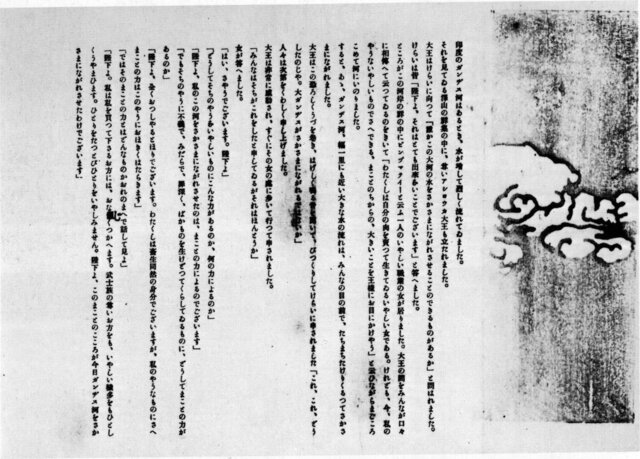 印度のガンヂス河はあるとき、水が増して烈しく流れてゐました。
それを見てゐる沢山の群集の中に、尊いアショウカ大王も立たれました。
大王はけらいに向つて「誰かこの大河の水をさかさまにながれさせることのできるものがあるか」と問はれました。
けらいは皆「陛下よ、それはとても出来ないことでございます」と答へました。
ところがこの河岸の群の中にビンヅマティーと云ふ一人のいやしい職業の女が居りました。大王の問をみんなが口々
に相伝へて云つてゐるのをきいて「わたくしは自分の肉を売つて生きてゐるいやしい女である。けれども、今、私の
やうないやしいものでさへできる、まことのちからの、大きいことを王様にお目にかけやう」と云ひながらまごころ
こめて河にいのりました。
すると、あゝ、ガンヂス河、幅一里にも近い大きな水の流れは、みんなの目の前で、たちまちたけりくるつてさかさ
まにながれました。
大王はこの恐ろしくうづを巻き、はげしく鳴る音を聞いて、びつくりしてけらいに申されました「これ、これ、どう
したのぢや。大ガンヂスがさかさまにながれるではないか」
人々は次第をくわしく申し上げました。
大王は非常に感動され、すぐにその女の処に歩いて行つて申されました。
「みんなはそちがこれをしたと申してゐるがそれはほんとうか」
女が答へました。
「はい、さやうでございます。陛下よ」
「どうしてそちのやうないやしいものにこんな力があるのか、何の力によるのか」
「陛下よ、私のこの河をさかさまにながれさせたのは、まことの力によるのでございます」
「でもそちのやうに不義で、みだらで、罪深く、ばかものを生けどつてくらしてゐるものに、どうしてまことの力が
あるのか」
「陛下よ、全くおつしやるとほりでございます。わたくしは畜生同然の身分でございますが、私のやうなものにさへ
まことの力はこのやうにおほきくはたらきます」
「ではそのまことの力とはどんなものかおれのまへで話して見よ」
「陛下よ。私は私を買つて下さるお方には、おなじくつかへます。武士族の尊いお方をも、いやしい穢多をもひとし
くうやまひます。ひとりをたつとびひとりをいやしみません。陛下よ、このまことのこころが今日ガンヂス河をさか
さまにながれさせたわけでございます」